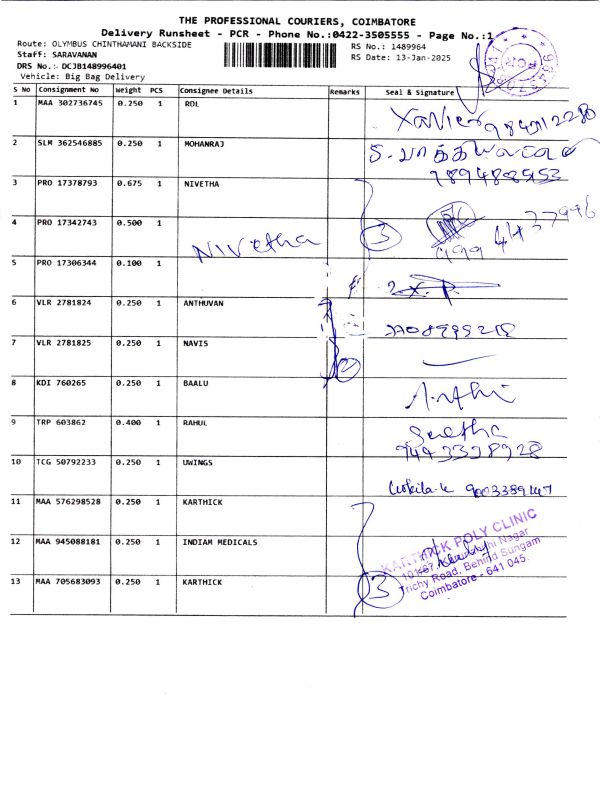 THE PROFESSIONAL COURIERS, COIMBATORE
Delivery Runsheet - PCR - Phone No.:0422-3505555 - Page No.:1
Route: OLYMBUS CHINTHAMANI BACKSIDE
RS No.: 1489964
Staff: SARAVANAN
RS Date: 13-Jan-2025
DRS No.:- DCJB148996401
Vehicle: Big Bag Delivery
S No Consignment No Weight PCS Consignee Details Remarks Seal & Signature
1 MAA 302736745 0.250 1 RDL
Xavier
2 SLM 362546885 0.250 1 MOHANRAJ
3 PRO 17378793 0.675 1 NIVETHA
4 PRO 17342743 0.500 1 Nivetha 3
5 PRO 17306344 0.100 1
6 VLR 2781824 0.250 1 ANTHUVAN
7 VLR 2781825 0.250 1 NAVIS
2
8 KDI 760265 0.250 1 BAALU
9 TRP 603862 0.400 1 RAHUL
10 TCG 50792233 0.250 1 UWINGS
11 MAA 576298528 0.250 1 KARTHICK
12 MAA 945088181 0.250 1 INDIAM MEDICALS
13 MAA 705683093 0.250 1 KARTHICK
3
KARTHICK POLY CLINIC
Nagar
Trichy Road, Behind Sungam
Coimbatore - 641 045.